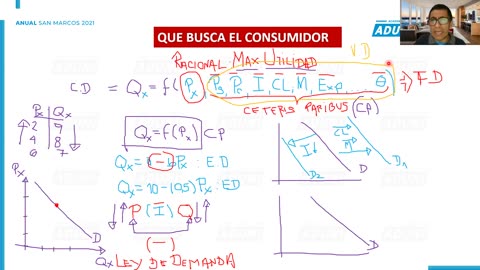 ANUAL SAN MARCOS 2021
QUE BUSCA EL CONSUMIDOR
ADUNI
RACIONAL MAX UTILIDAD
V D
C.D = Qx = f(Px, Ps, Pc, I, CL, M, Exp, θ) → FD
CETERIS PARIBUS (CP)
Px Qx
2 9
4 8
6 7
Qx = f(Px) C P
Px : E.D
Qx = 10 - 0,5 Px : ED
P (I) Q
(-)
LEY DE DEMANDA
Px
D
Qx
I↓
D2
D
CL
M
D1
D